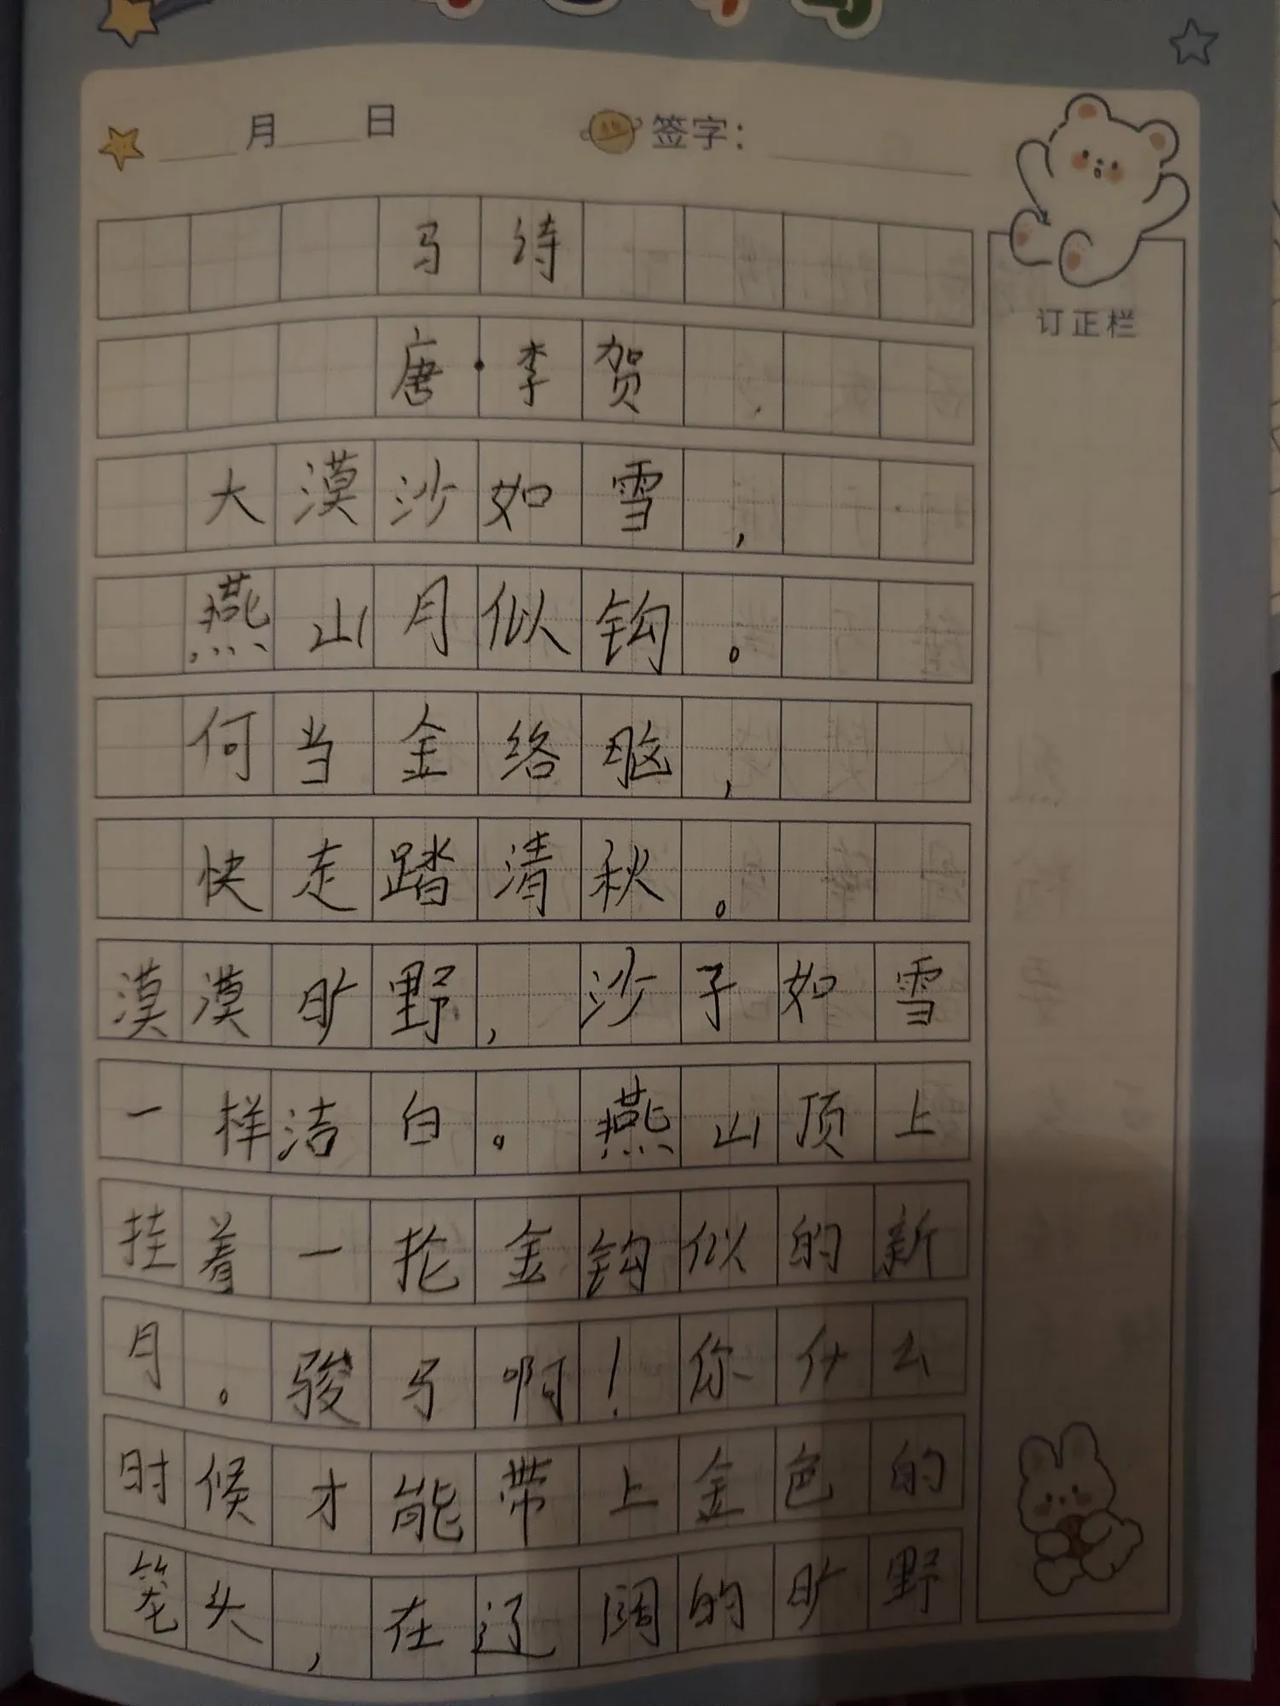 月 日 签字：
订正栏
马诗
唐·李贺
大漠沙如雪，
燕山月似钩。
何当金络脑，
快走踏清秋。
漠漠旷野，沙子如雪
一样洁白。燕山顶上
挂着一抡金钩似的新
月。骏马啊！你什么
时候才能带上金色的
笼头，在辽阔的旷野